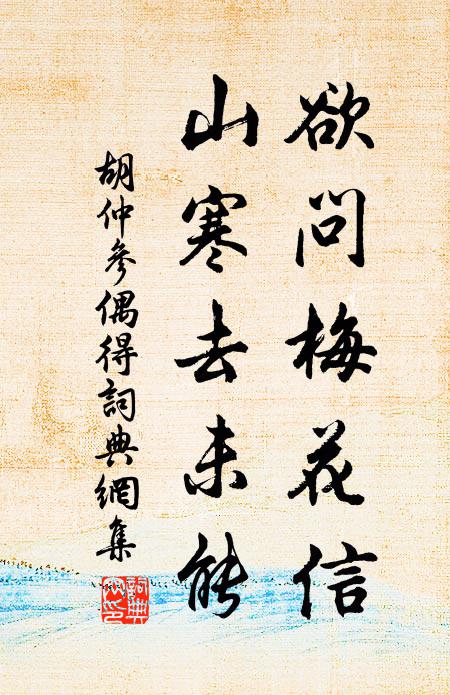 欲问梅花信
山寒去未能
胡仲參偶得詞典網集